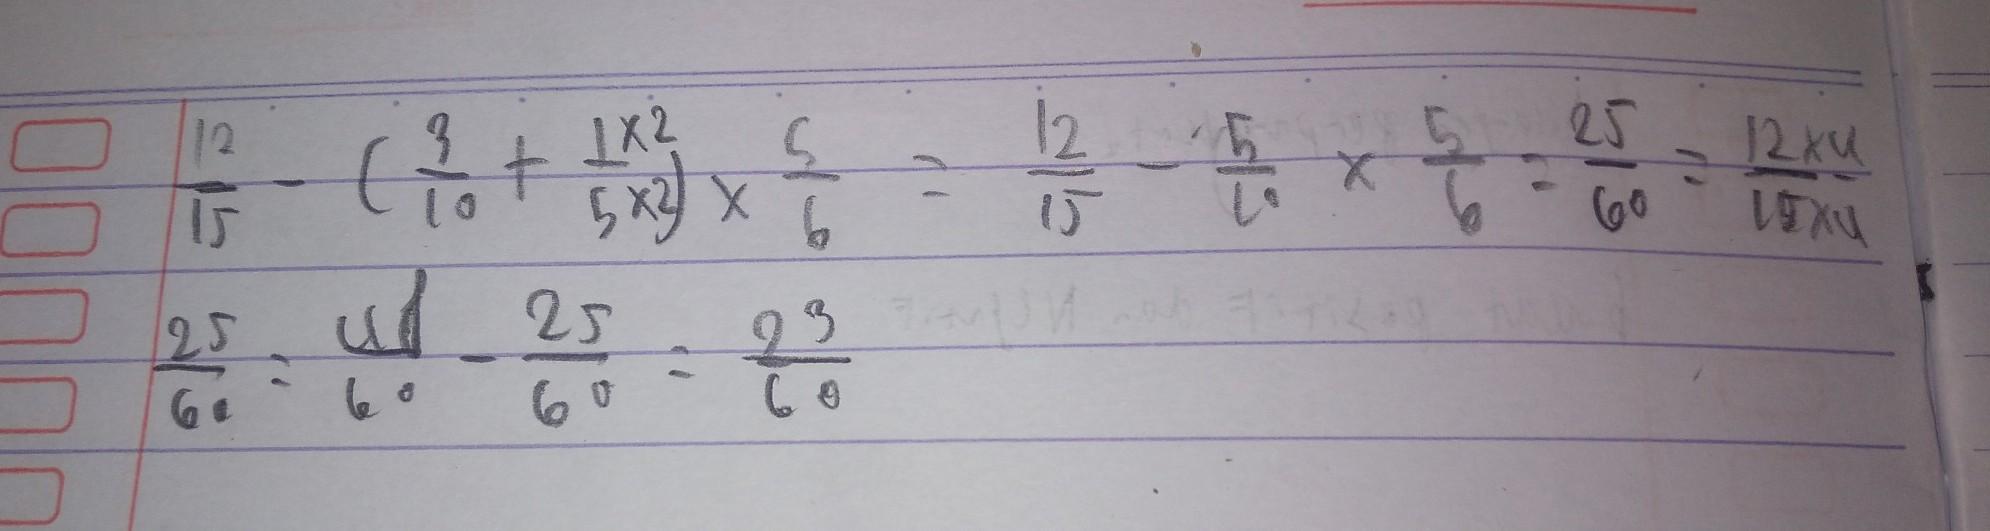 12/15 - (3/10 + 1x2/5x2) x 5/6 = 12/15 - 5/10 x 5/6 = 25/60 = 12x4/15x4 -
25/60 = 48/60 - 25/60 = 23/60